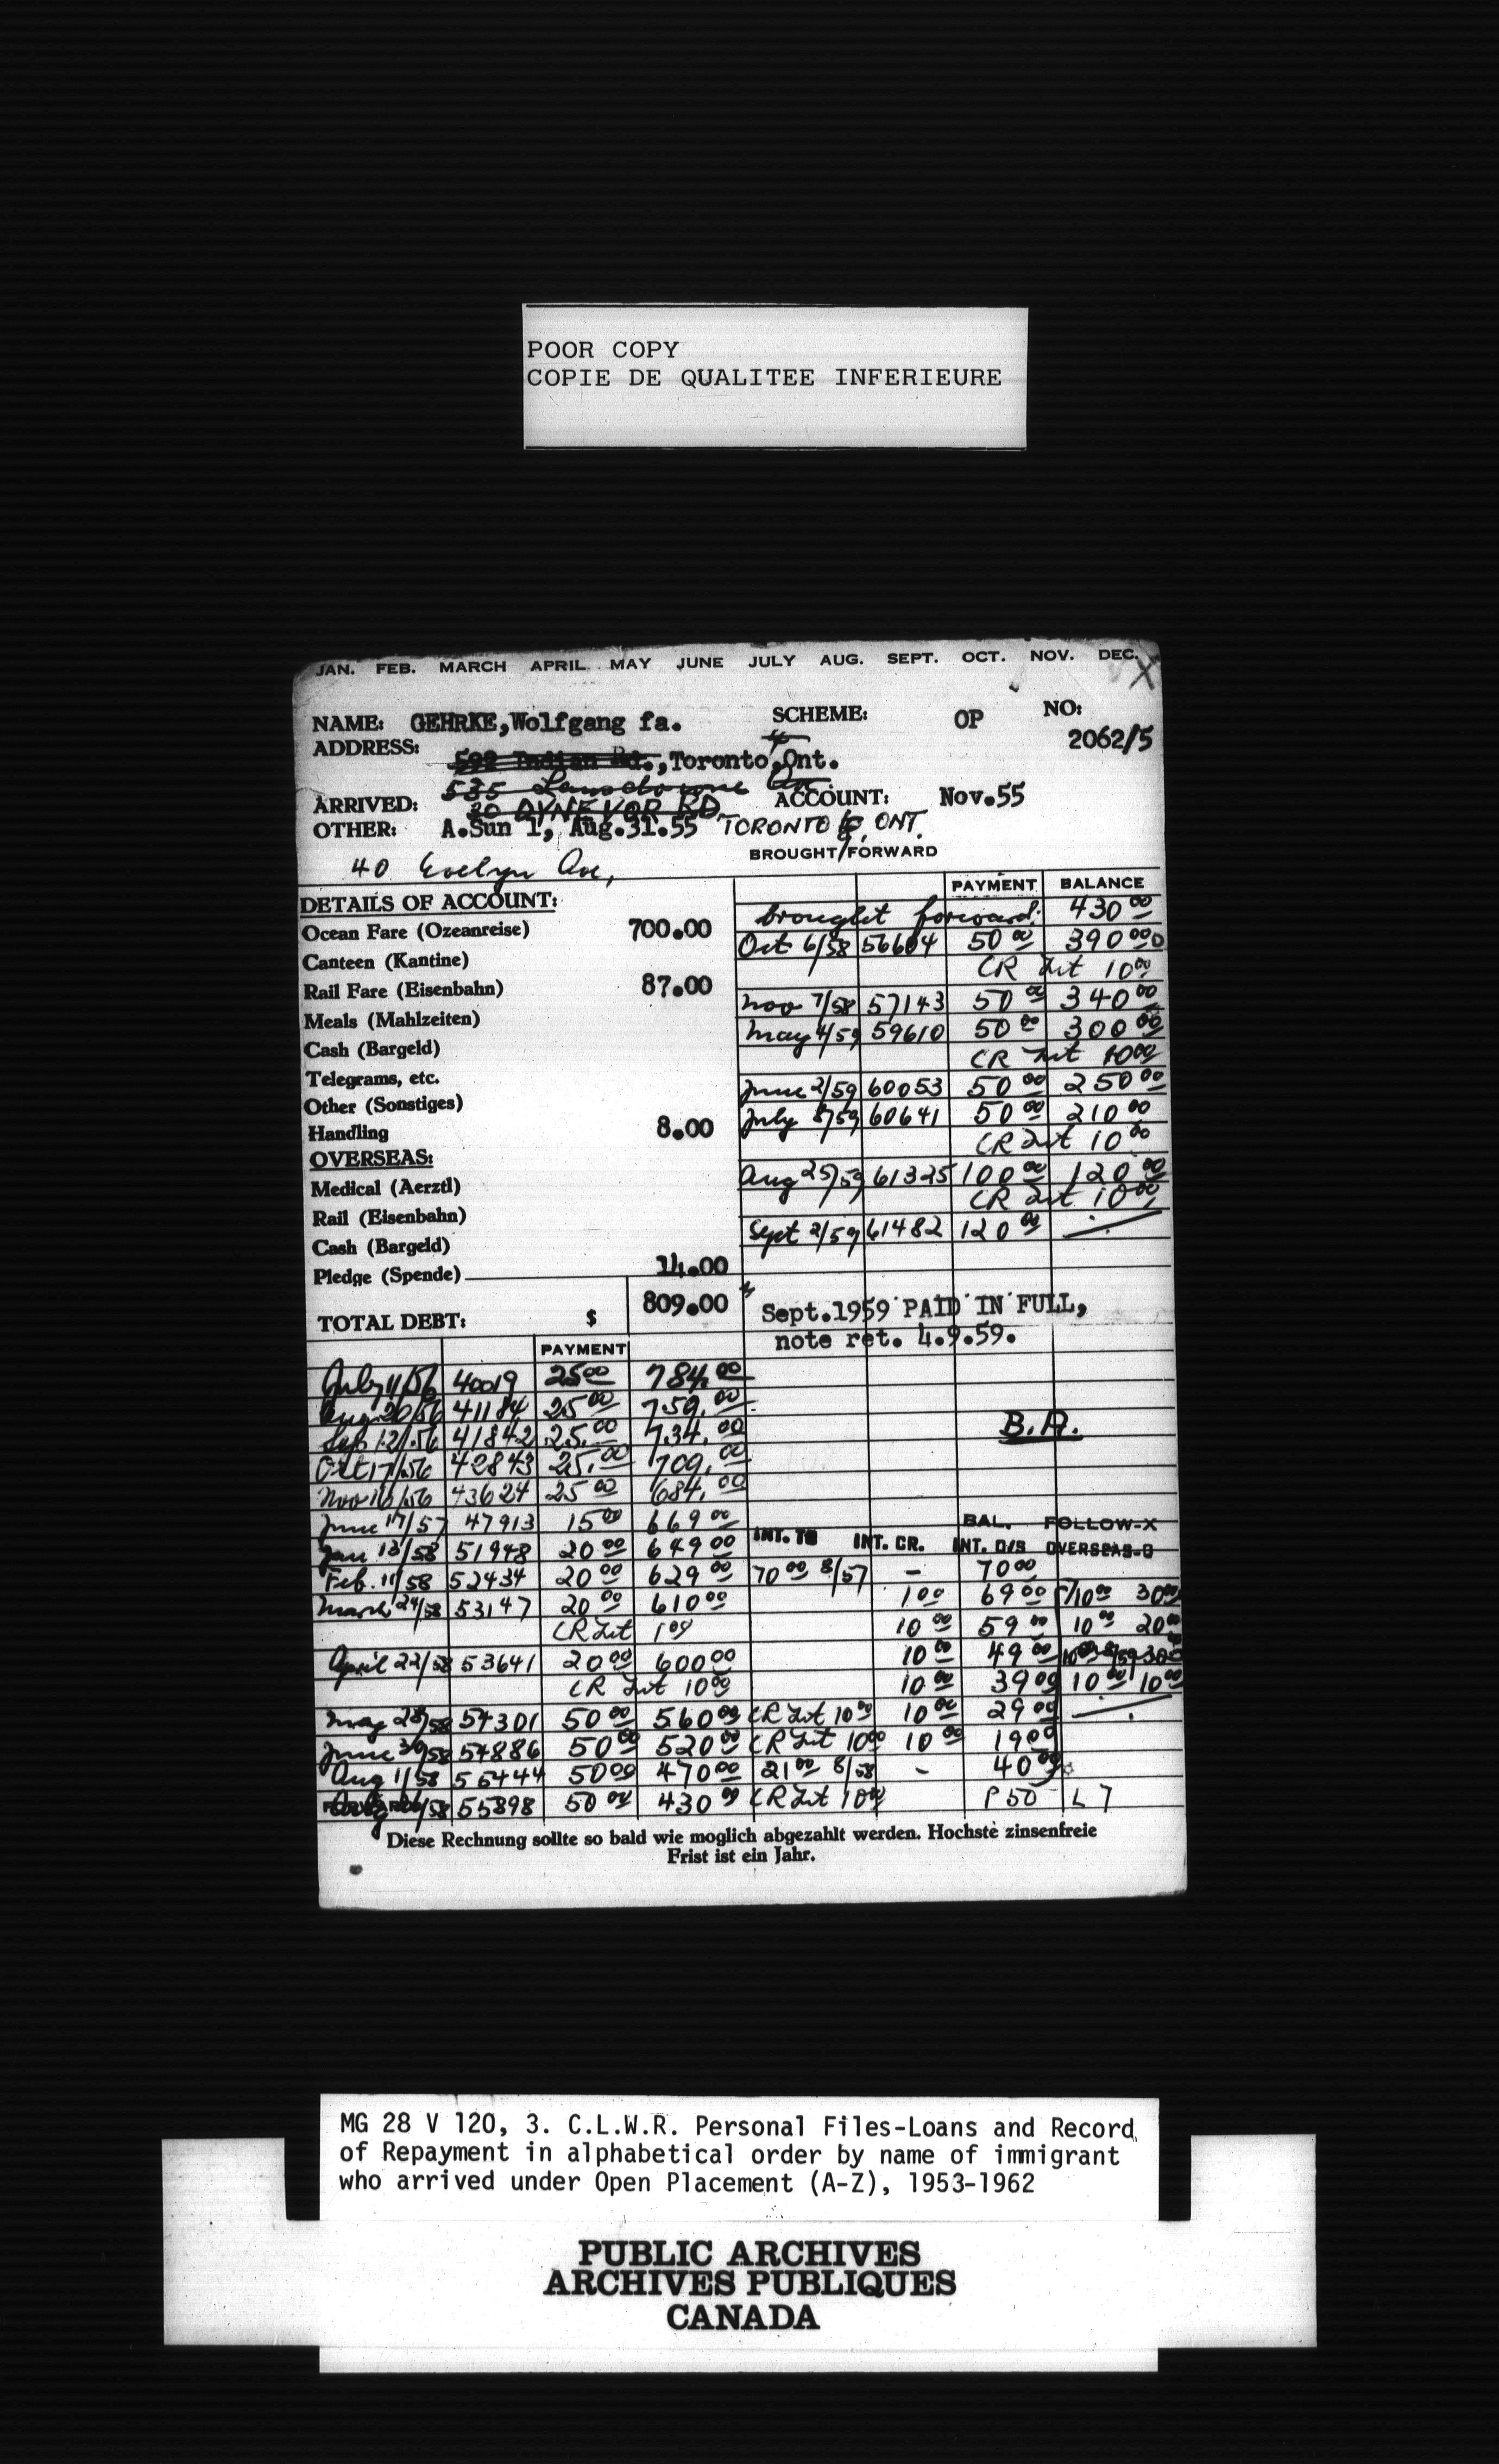 POOR COPY
COPIE DE QUALITEE INFERIEURE
JAN. FEB. MARCH APRIL MAY JUNE JULY AUG. SEPT. OCT. NOV. DEC. X
NAME: GEHRKE,Wolfgang fa. SCHEME: OP NO: 2062/5
ADDRESS: 592 Indian Rd.,Toronto 4 Ont.
535 Lansdowne Ave
ARRIVED: 30 DYNEVOR RD ACCOUNT: Nov.55
OTHER: A.Sun 1, Aug.31.55 TORONTO ONT.
40 Evelyn Ave, BROUGHT FORWARD
DETAILS OF ACCOUNT: PAYMENT BALANCE
brought forward: 430 00
Ocean Fare (Ozeanreise) 700.00
Oct 6/58 56604 50 00 390 00
Canteen (Kantine) CR Int 10 00
Rail Fare (Eisenbahn) 87.00
Nov 7/58 57143 50 00 340 00
Meals (Mahlzeiten) May 4/59 59610 50 00 300 00
Cash (Bargeld) CR Int 10 00
Telegrams, etc. June 2/59 60053 50 00 250 00
Other (Sonstiges) July 8/59 60641 50 00 210 00
Handling 8.00 CR Int 10 00
OVERSEAS:
Medical (Aerztl) Aug 25/59 61325 100 00 120 00
CR Int 10 00
Rail (Eisenbahn) Sept 2/59 61482 120 00
Cash (Bargeld)
Pledge (Spende) 14.00
TOTAL DEBT: $ 809.00 Sept.1959 PAID IN FULL,
note ret. 4.9.59.
PAYMENT
July 11/56 40019 25 00 784.00
Aug 20/56 41184 25 00 759.00
Sep 12/56 41842 25.00 734.00
B.A.
Oct 17/56 42843 25.00 709.00
Nov 16/56 43624 25 00 684.00
June 17/57 47913 15 00 669 00
BAL. FOLLOW-X
INT. TO INT. CR. INT. O/S OVERSEAS-O
Jan 13/58 51948 20 00 649 00
Feb. 11/58 52434 20 00 629 00 70 00 8/57 - 70 00
March 24/58 53147 20 00 610 00 1 00 69 00 10 00 30 00
CR Int 1 00 10 00 59 00 10 00 20 00
April 22/58 53641 20 00 600 00 10 00 49 00
CR Int 10 00 10 00 39 00 10 00 10 00
May 28/58 54301 50 00 560 00 CR Int 10 00 10 00 29 00
June 30/58 54886 50 00 520 00 CR Int 10 00 10 00 19 00
Aug 1/58 55444 50 00 470 00 21 00 8/58 - 40 00
55898 50 00 430 00 CR Int 10 00 P 50 L 7
Diese Rechnung sollte so bald wie moglich abgezahlt werden. Hochste zinsenfreie
Frist ist ein Jahr.
MG 28 V 120, 3. C.L.W.R. Personal Files-Loans and Record
of Repayment in alphabetical order by name of immigrant
who arrived under Open Placement (A-Z), 1953-1962
PUBLIC ARCHIVES
ARCHIVES PUBLIQUES
CANADA